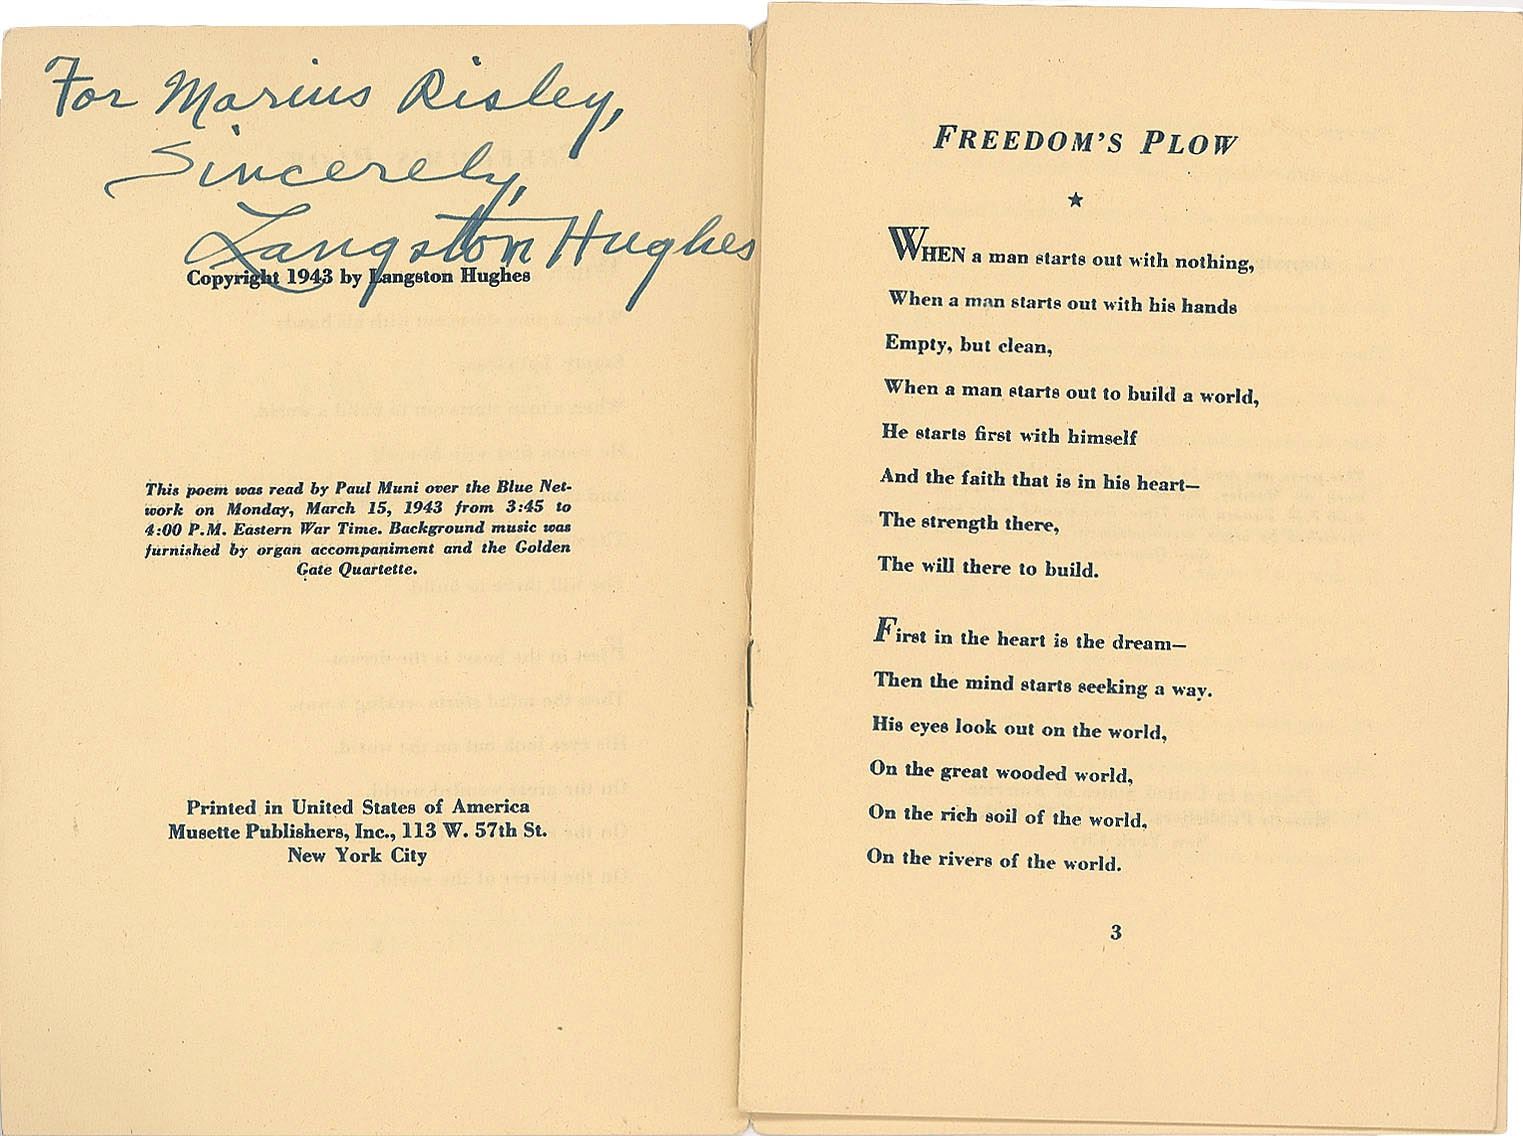 For Marius Risley,
Sincerely,
Langston Hughes
Copyright 1943 by Langston Hughes
This poem was read by Paul Muni over the Blue Net-
work on Monday, March 15, 1943 from 3:45 to
4:00 P.M. Eastern War Time. Background music was
furnished by organ accompaniment and the Golden
Gate Quartette.
Printed in United States of America
Musette Publishers, Inc., 113 W. 57th St.
New York City
FREEDOM'S PLOW
WHEN a man starts out with nothing,
When a man starts out with his hands
Empty, but clean,
When a man starts out to build a world,
He starts first with himself
And the faith that is in his heart—
The strength there,
The will there to build.
First in the heart is the dream—
Then the mind starts seeking a way.
His eyes look out on the world,
On the great wooded world,
On the rich soil of the world,
On the rivers of the world.
3